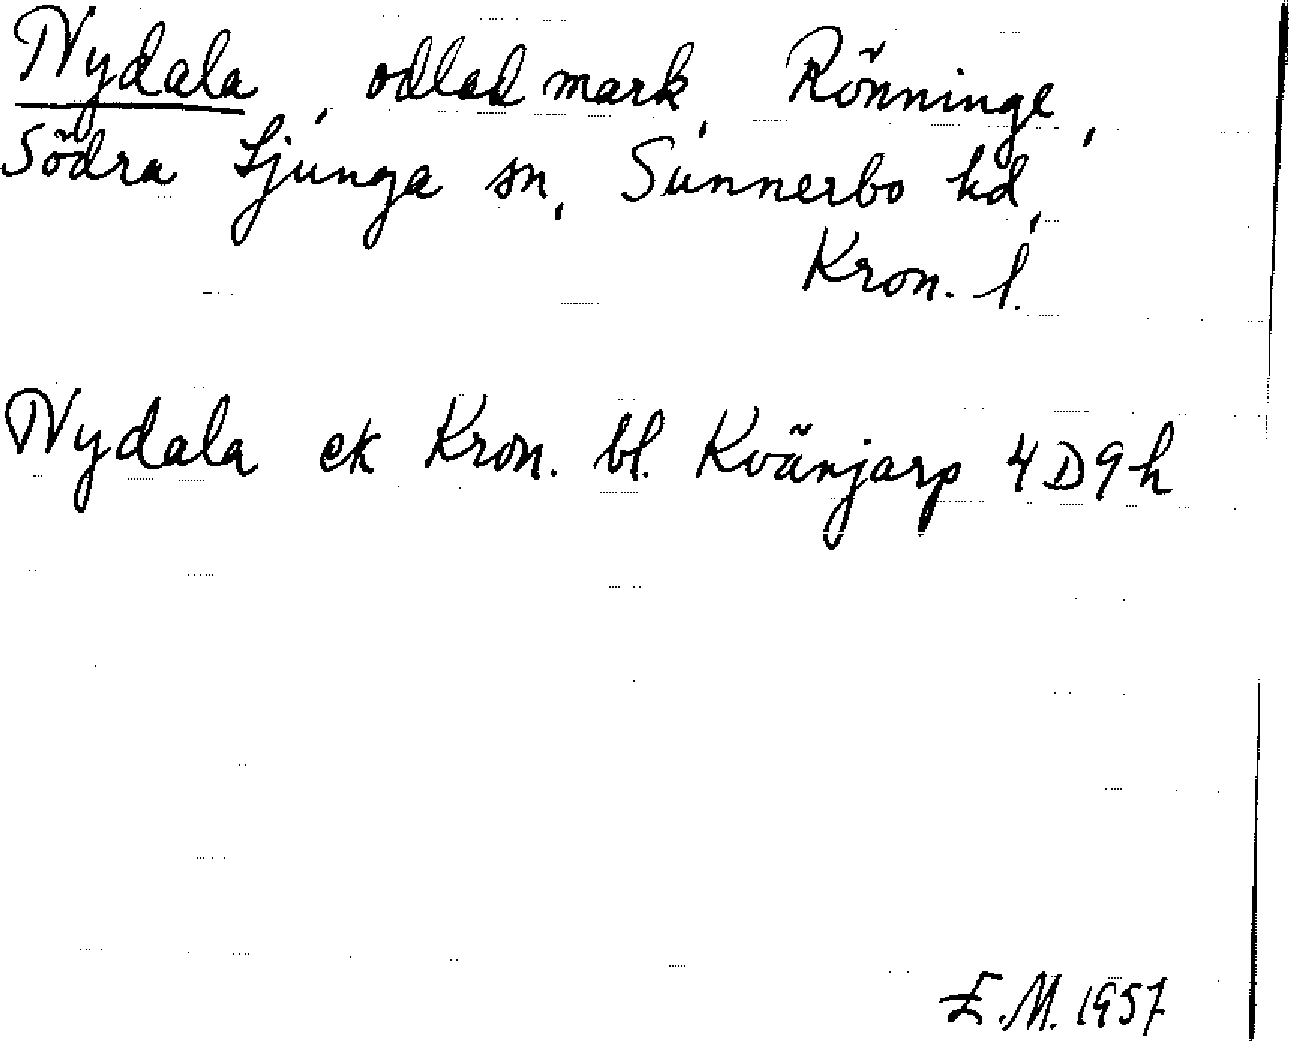 Nydala, odlad mark, Rönninge,
Södra Ljunga sn, Sunnerbo hd,
Kron. l.
Nydala ek Kron. bl. Kvänjarp 4D9h
E.M. 1957